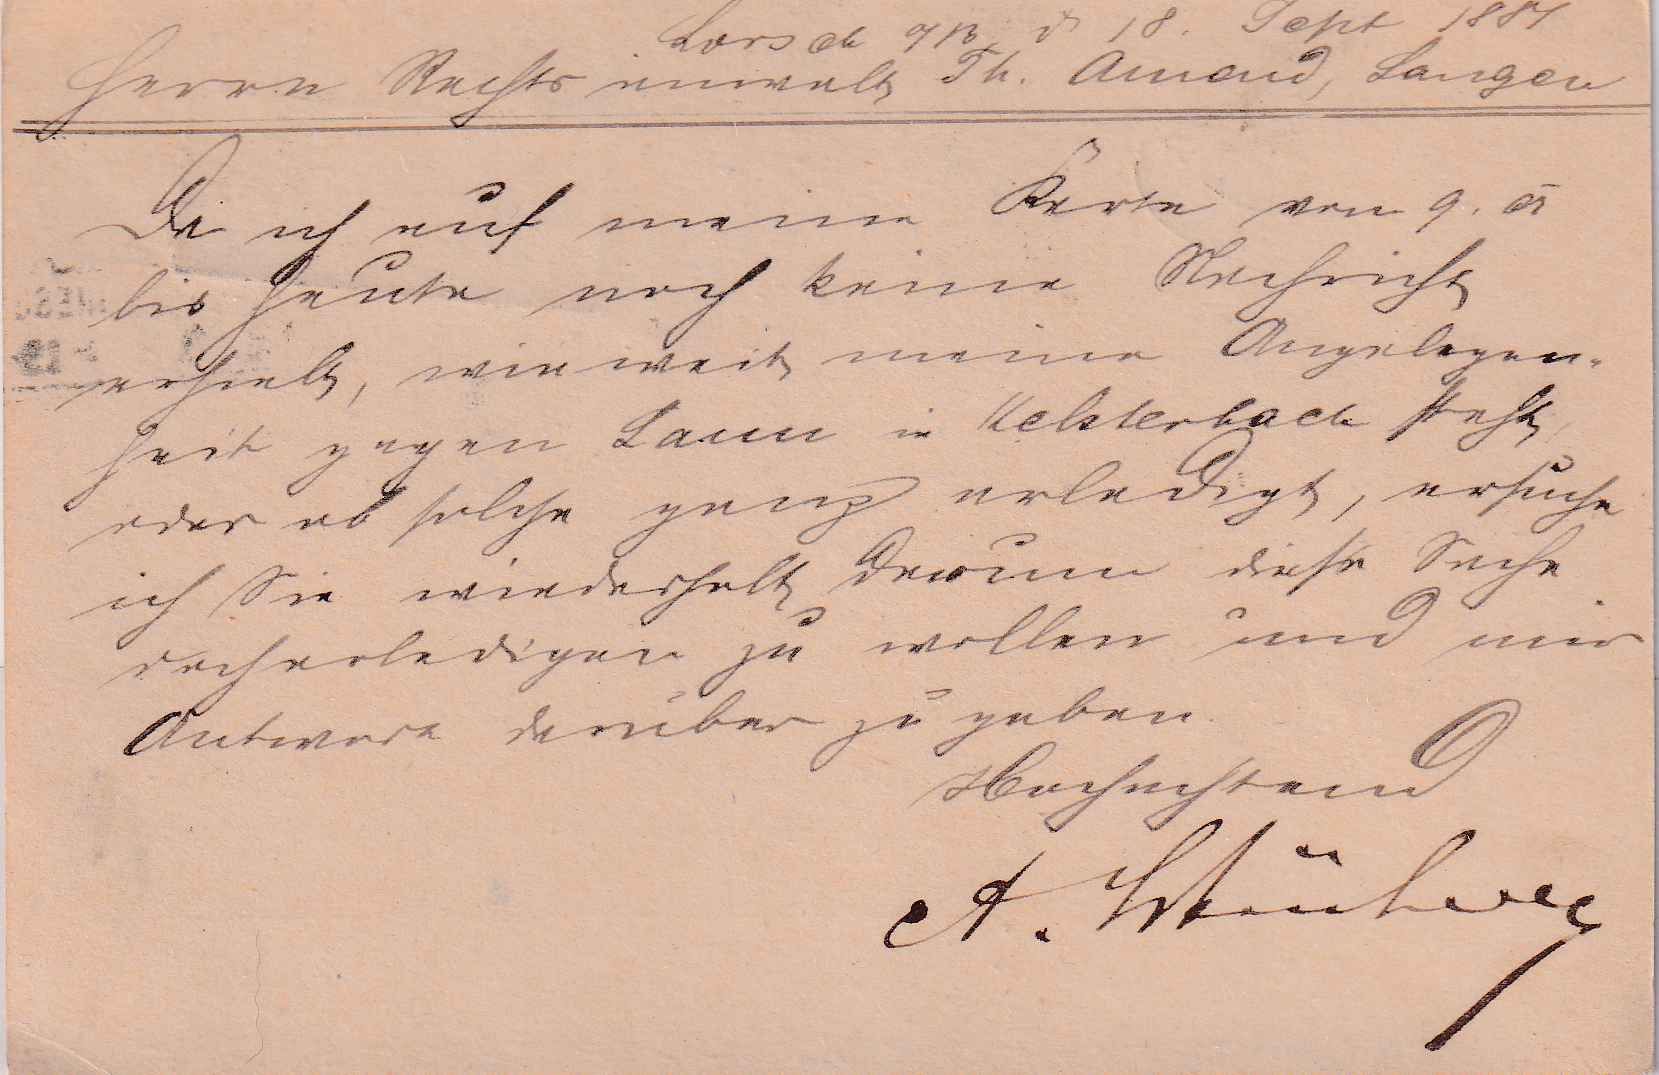 Lorsch 18. Sept 1887
Herrn Rechtsanwalt Th. Amend, Langen
Da ich auf meine Karte von 9. ct
bis heute noch keine Nachricht
erhielt, wie weit meine Angelegen-
heit gegen Laun in Kelsterbach steht,
oder ob solche ganz erledigt, ersuche
ich Sie wiederholt darum diese Sache
zu wollen und mir
Antwort darüber zu geben.
Hochachtend
A.